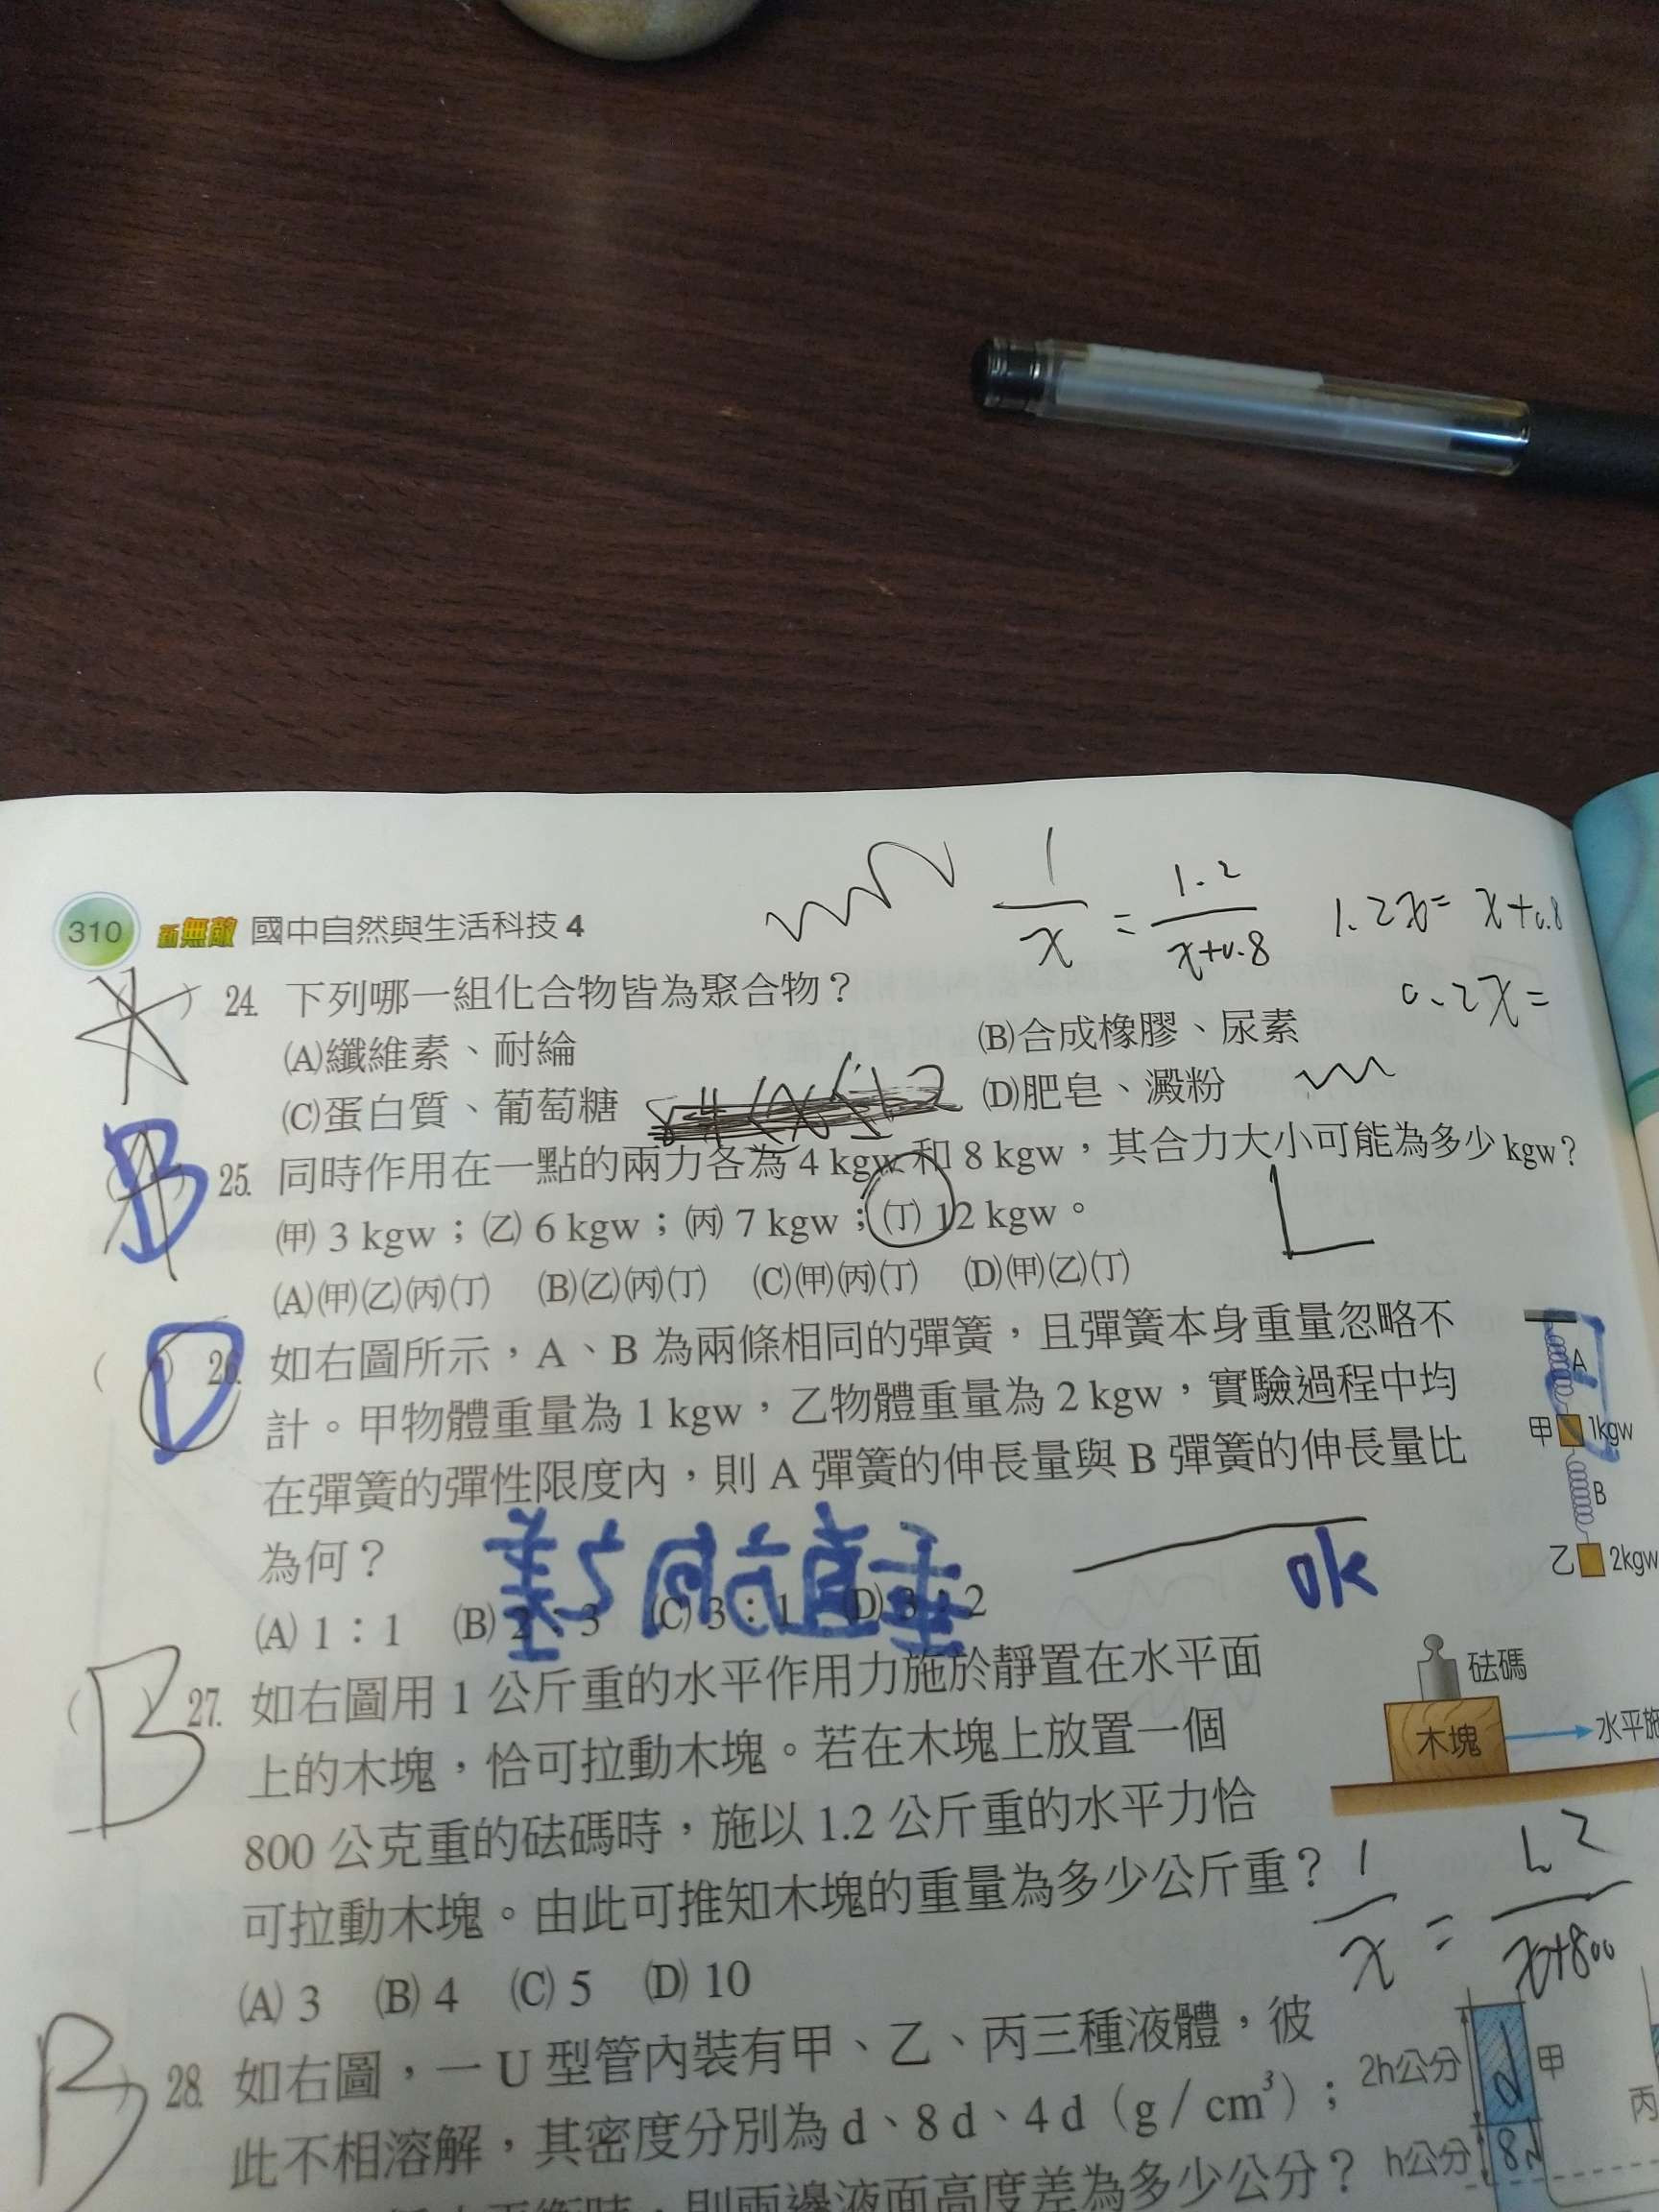 310 新無敵 國中自然與生活科技4
1/x = 1.2/x+0.8 1.2x= x+0.8
0.2x=
( ) 24. 下列哪一組化合物皆為聚合物？
(A)纖維素、耐綸 (B)合成橡膠、尿素
(C)蛋白質、葡萄糖 (D)肥皂、澱粉
B ( ) 25. 同時作用在一點的兩力各為 4 kgw 和 8 kgw，其合力大小可能為多少 kgw？
(甲) 3 kgw；(乙) 6 kgw；(丙) 7 kgw；(丁) 12 kgw。
(A)(甲)(乙)(丙)(丁) (B)(乙)(丙)(丁) (C)(甲)(丙)(丁) (D)(甲)(乙)(丁)
D ( ) 26. 如右圖所示，A、B 為兩條相同的彈簧，且彈簧本身重量忽略不
計。甲物體重量為 1 kgw，乙物體重量為 2 kgw，實驗過程中均
在彈簧的彈性限度內，則 A 彈簧的伸長量與 B 彈簧的伸長量比
為何？
(A) 1：1 (B) 2：3 (C) 3：1 (D) 3：2
A
甲 1kgw
B
乙 2kgw
ok
B ( ) 27. 如右圖用 1 公斤重的水平作用力施於靜置在水平面
上的木塊，恰可拉動木塊。若在木塊上放置一個
800 公克重的砝碼時，施以 1.2 公斤重的水平力恰
可拉動木塊。由此可推知木塊的重量為多少公斤重？
(A) 3 (B) 4 (C) 5 (D) 10
砝碼
木塊
水平施
1/x = 1.2/x+800
B ( ) 28. 如右圖，一 U 型管內裝有甲、乙、丙三種液體，彼
此不相溶解，其密度分別為 d、8 d、4 d（g／cm³）；
則兩邊液面高度差為多少公分？
2h公分 d 甲
丙
h公分 8d